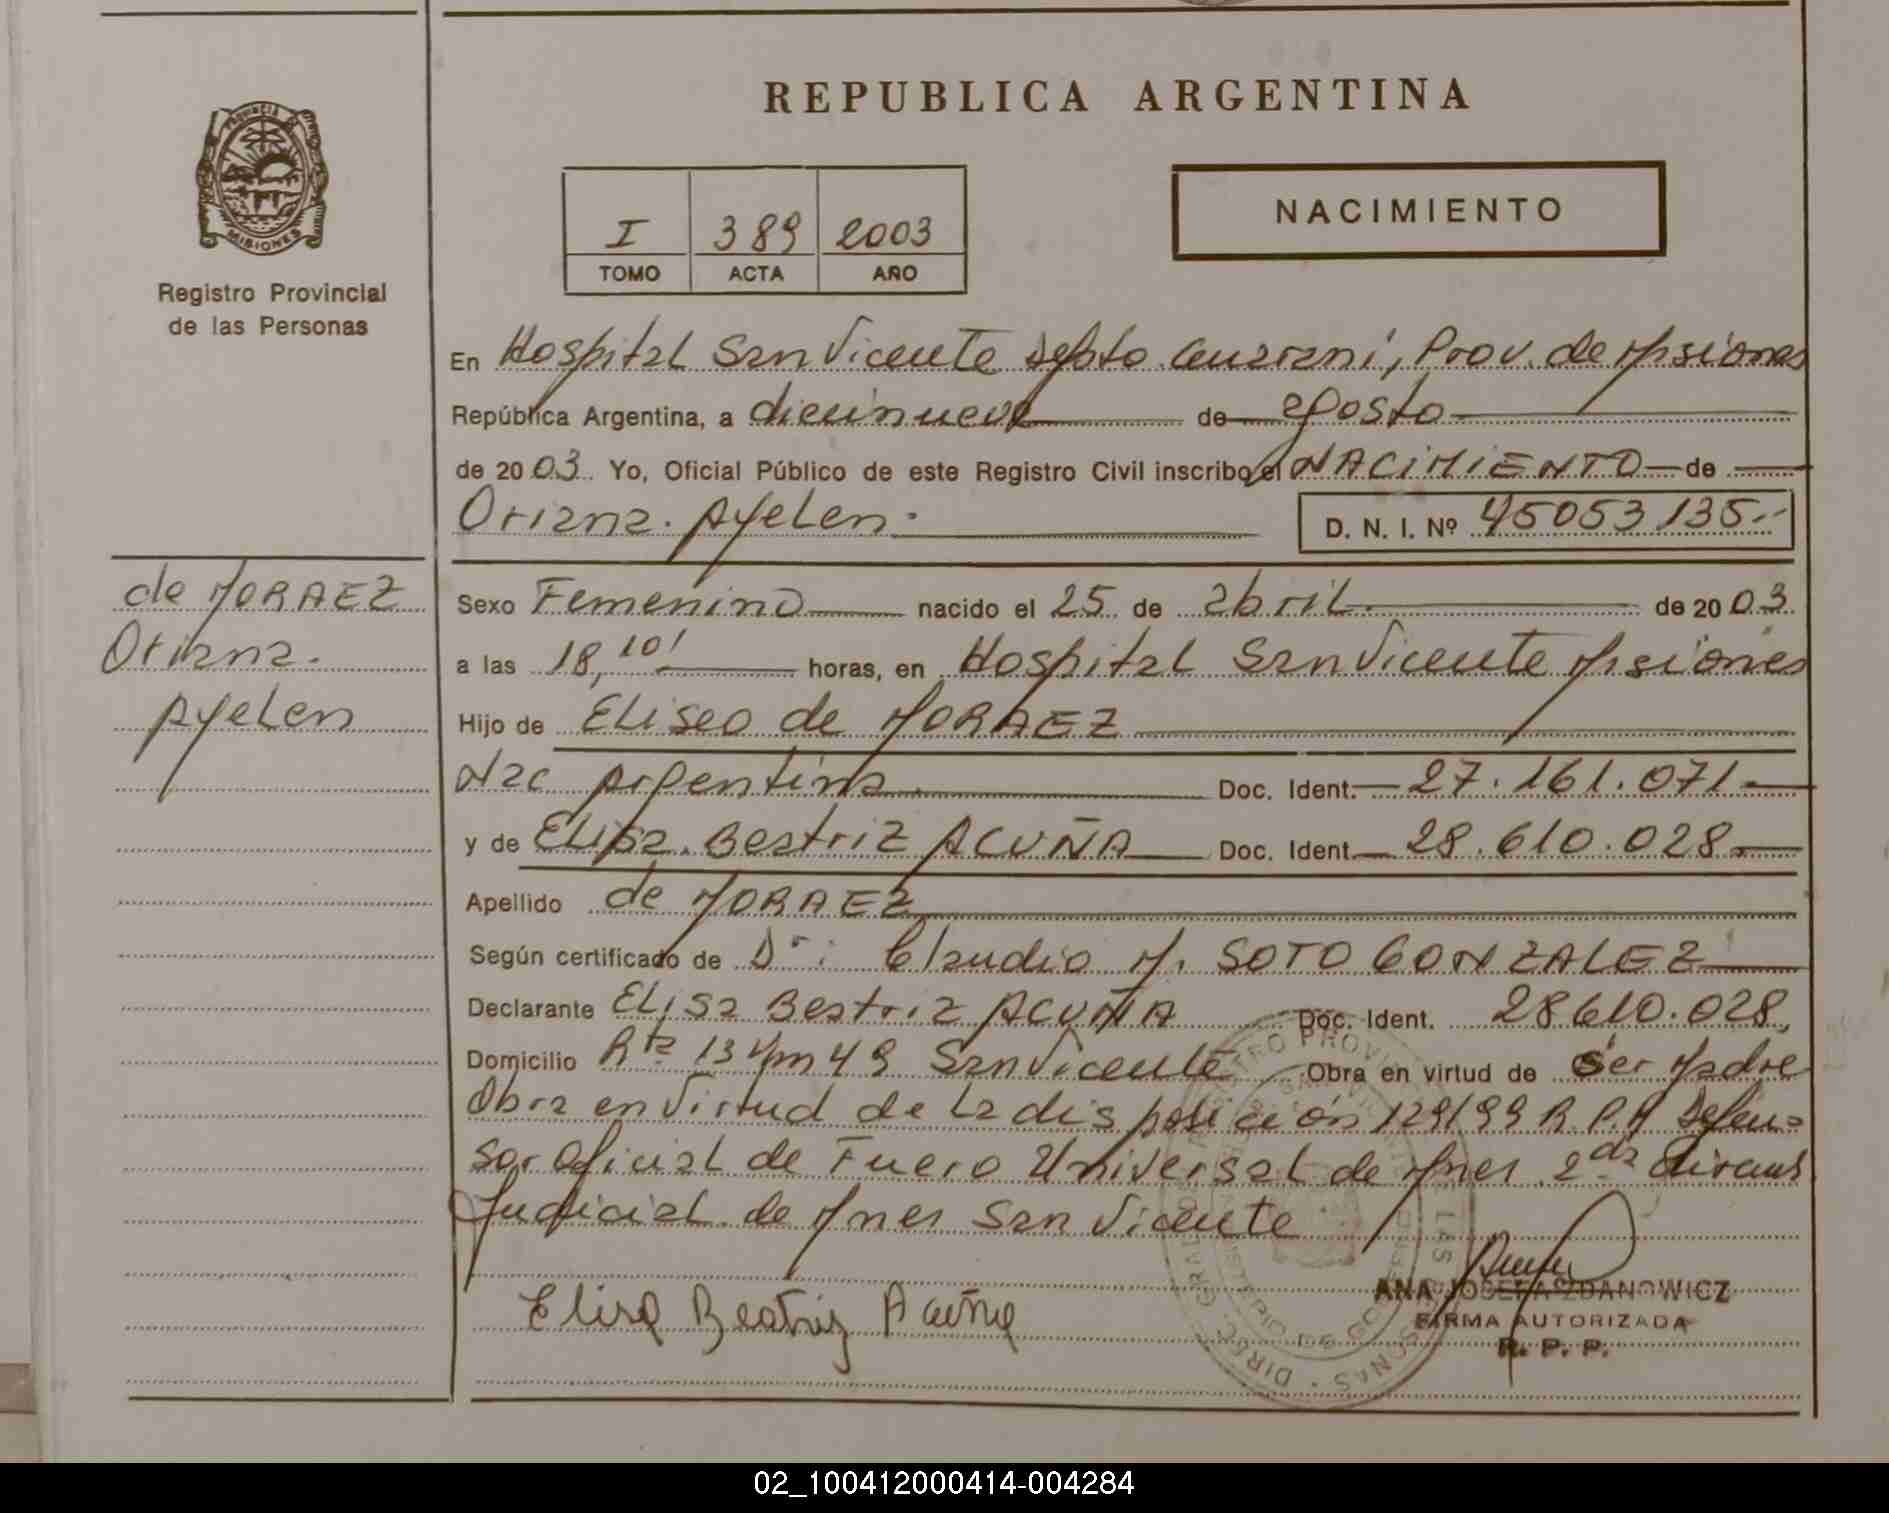 REPUBLICA ARGENTINA
PROVINCIA DE
MISIONES
Registro Provincial
de las Personas
I 389 2003
TOMO ACTA AÑO
NACIMIENTO
En Hospital San Vicente Depto. Guarani, Prov. de Misiones
República Argentina, a diecinueve de agosto
de 2003. Yo, Oficial Público de este Registro Civil inscribo el NACIMIENTO de
Oriana. Ayelen. D. N. I. Nº 45053135.-
de MORAEZ
Oriana.
Ayelen
Sexo Femenino nacido el 25 de abril de 2003.
a las 18,10' horas, en Hospital San Vicente Misiones
Hijo de Eliseo de MORAEZ
Nac Argentina Doc. Ident. 27.161.071
y de Elisa. Beatriz ACUÑA Doc. Ident. 28.610.028
Apellido de MORAEZ
Según certificado de Dr: Claudio M. SOTO GONZALEZ
Declarante Elisa Beatriz ACUÑA Doc. Ident. 28610.028,
Domicilio Rta 13 Km 49 San Vicente Obra en virtud de ser Madre
Obra en virtud de la disposición 129/99 R.P.P. Defen=
sor oficial de Fuero Universal de Mnes. 2da Circuns
Judicial de Mnes San Vicente
Elisa Beatriz Acuña
ANA JOSEFA ZDANOWICZ
FIRMA AUTORIZADA
R. P. P.
02_100412000414-004284